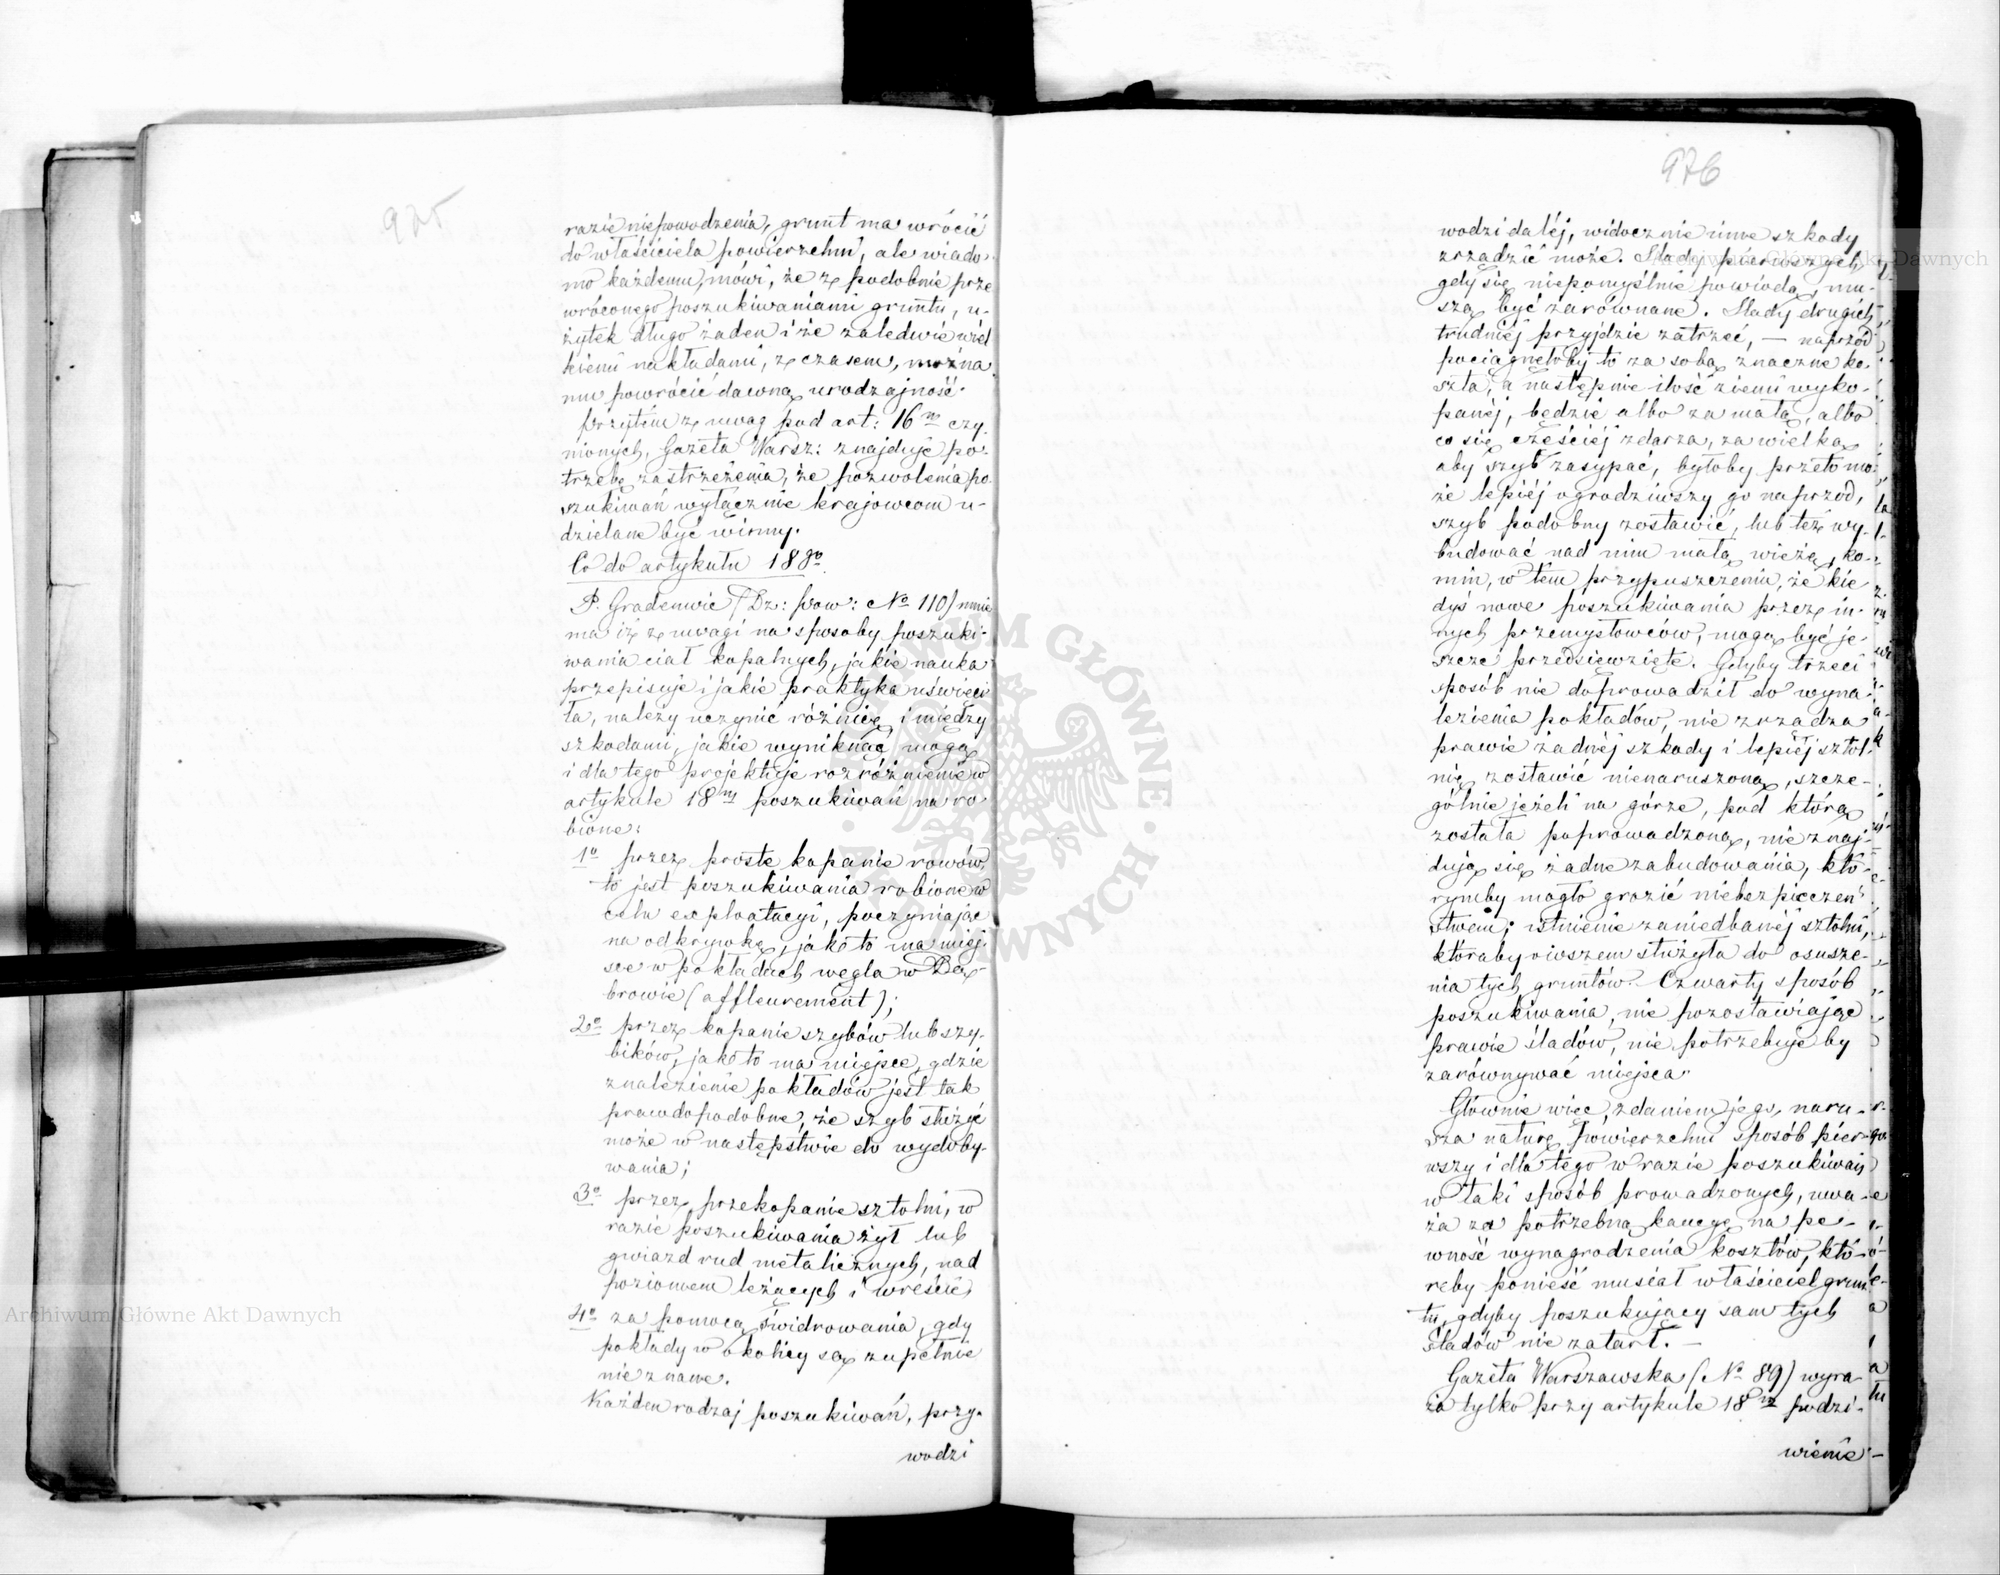 925
razie niepowodzenia, grunt ma wrócić
do właściciela powierzchni, ale wiado-
mo każdemu, mówi, że z podobnie prze
wróconego poszukiwaniami gruntu, u-
żytek długo żaden i że zaledwie wiel
kiemi nakładami, z czasem, można
mu powrócić dawną urodzajność.
Przytém z uwag pod art: 16m czy-
nionych, Gazeta Warsz: znajduje po-
trzebę zastrzeżenia, że pozwolenia po
szukiwań wyłącznie krajowcom u-
dzielane być winny.
Co do artykułu 18go.
P. Gradenwic (Dz: pow: No 110) mnie
ma iż z uwagi na sposoby poszuki-
wania ciał kopalnych, jakie nauka
przepisuje i jakie praktyka uświęci
ła, należy uczynić różnicę i między
szkodami, jakie wyniknąć mogą
i dla tego projektuje rozróżnienie w
artykule 18m poszukiwań na ro-
bione:
1o przez proste kopanie rowów
to jest poszukiwania robione w
celu exploatacyi, poczynając
na odkrywkę, jak to ma miej-
sce w pokładach węgla w Dą-
browie (affleurement);
2o przez kopanie szybów lub szy-
bików, jak to ma miejsce, gdzie
znalezienie pokładów jest tak
prawdopodobne, że szyb służyć
może w następstwie do wydoby-
wania;
3o przez przekopanie sztolni, w
razie poszukiwania żył lub
gwiazd rud metalicznych, nad
poziomem leżących i wreście
4o za pomocą świdrowania, gdy
pokłady w okolicy są zupełnie
nieznane.
Każden rodzaj poszukiwań, przy-
wodzi
976
wodzi daléj, widocznie inne szkody
zrządzić może. Ślady pierwszych
gdy się niepomyślnie powiodą, mu-
szą być zarównane. Ślady drugich
trudniéj przyjdzie zatrzeć, — naprzód
pociągnęłoby to za sobą znaczne ko-
szta, a następnie ilość ziemi wyko-
panéj, będzie albo za mała, albo
co się częściéj zdarza, za wielka
aby szyb zasypać, byłoby przeto mo-
że lepiéj ogrodziwszy go naprzód,
szyb podobny zostawić, lub też wy-
budować nad nim małą wieżę, ko-
min, w tem przypuszczeniu, że kie
dyś nowe poszukiwania przez in-
nych przemysłowców, mogą być je-
szcze przedsięwzięte. Gdyby trzeci
sposób nie doprowadził do wyna-
lezienia pokładów, nie zrządza
prawie żadnéj szkody i lepiéj sztol-
nię zostawić nienaruszoną, szcze-
gólnie jeżeli na górze, pod którą
została poprowadzoną, nie znaj-
dują się żadne zabudowania, któ-
rymby mogło grozić niebezpieczeń
stwem; istnienie zaniedbanéj sztolni,
któraby owszem służyła do osusze-
nia tych gruntów. Czwarty sposób
poszukiwania, nie pozostawiając
prawie śladów, nie potrzebuje by
zarównywać miejsca.
Głównie więc, zdaniem jego, naru-
sza naturę powierzchni sposób pier-
wszy i dla tego w razie poszukiwań
w taki sposób prowadzonych, uwa-
ża za potrzebną kaucyę na pe-
wność wynagrodzenia kosztów, któ-
reby ponieść musiał właściciel grun
tu, gdyby poszukujący sam tych
śladów nie zatarł. —
Gazeta Warszawska (No 89) wyra-
ża tylko przy artykule 18m podzi-
wienie
Archiwum Główne Akt Dawnych
Archiwum Główne Akt Dawnych
ARCHIWUM GŁÓWNE AKT DAWNYCH